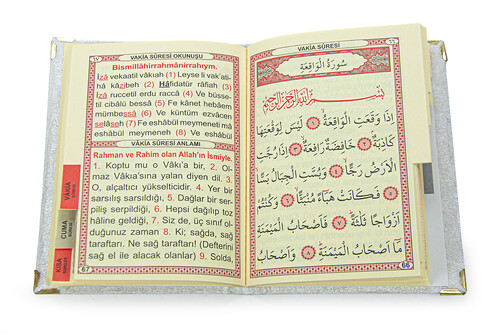 ٦٧
VAKİA SÛRESİ OKUNUŞU
Bismillâhirrahmânirrahıym.
İzâ vekaatil vâkıah (1) Leyse li vak'ati-
hâ kâzibeh (2) Hâfidatür râfiah (3)
İzâ ruccetil erdu raccâ (4) Ve büsset-
til cibâlü bessâ (5) Fe kânet hebâem
mümbessâ (6) Ve küntüm ezvâcen
selâseh (7) Fe eshâbül meymeneti mâ
eshâbül meymeneh (8) Ve eshâbül
VAKİA SÛRESİ ANLAMI
Rahman ve Rahim olan Allah'ın ismiyle.
1. Koptu mu o Vâkı'a bir, 2. Ol-
maz Vâkıa'sına yalan diyen dil. 3.
O, alçaltıcı yükselticidir. 4. Yer bir
sarsılış sarsıldığı, 5. Dağlar bir ser-
piliş serpildiği, 6. Hepsi dağılıp toz
hâline geldiği, 7. Siz de, üç sınıf ol-
duğunuz zaman 8. Ki; sağda, sağ
taraftarı. Ne sağ taraftarı! (Defterini
sağ el ile alacak olanlar) 9. Solda,
67
VÂKİA
CUMA
KISA
VAKİA SÛRESİ
٦٦
سُورَةُ الْوَاقِعَةِ
بِسْمِ اللّٰهِ الرَّحْمٰنِ الرَّحِيمِ
اِذَا وَقَعَتِ الْوَاقِعَةُ ﴿١﴾ لَيْسَ لِوَقْعَتِهَا
كَاذِبَةٌ ﴿٢﴾ خَافِضَةٌ رَافِعَةٌ ﴿٣﴾ اِذَا رُجَّتِ
الْاَرْضُ رَجًّا ﴿٤﴾ وَبُسَّتِ الْجِبَالُ بَسًّا ﴿٥﴾
فَكَانَتْ هَبَاءً مُنْبَثًّا ﴿٦﴾ وَكُنْتُمْ
اَزْوَاجًا ثَلٰثَةً ﴿٧﴾ فَاَصْحَابُ الْمَيْمَنَةِ
مَا اَصْحَابُ الْمَيْمَنَةِ ﴿٨﴾ وَاَصْحَابُ
66